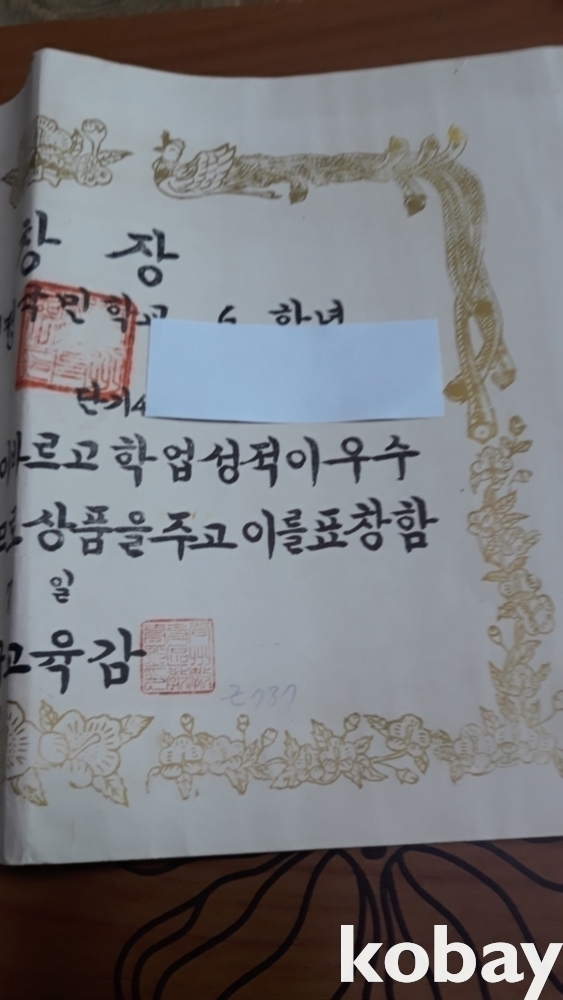 창 장
국민학교 6 학년
단기4
바르고 학업성적이우수
므로 상품을주고이를표창함
일
교육감
kobay